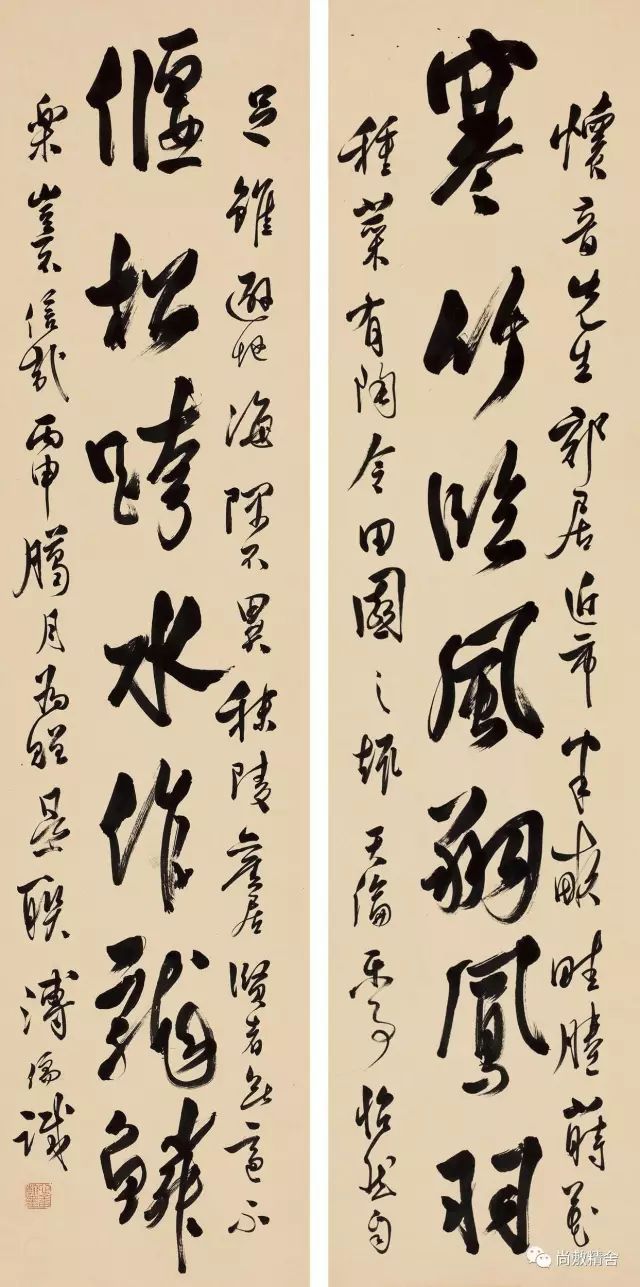 懷音先生郊居近市半畝畦塍蒔花
寒竹臨風翔鳳羽
種菜有陶令田園之趣天倫樂事怡然自
足雖避地海隅不異秣陵舊居賢者無適不
偃松跨水作龍鱗
樂豈不信哉丙申臘月為贈是聯溥儒識
尚敷精舍